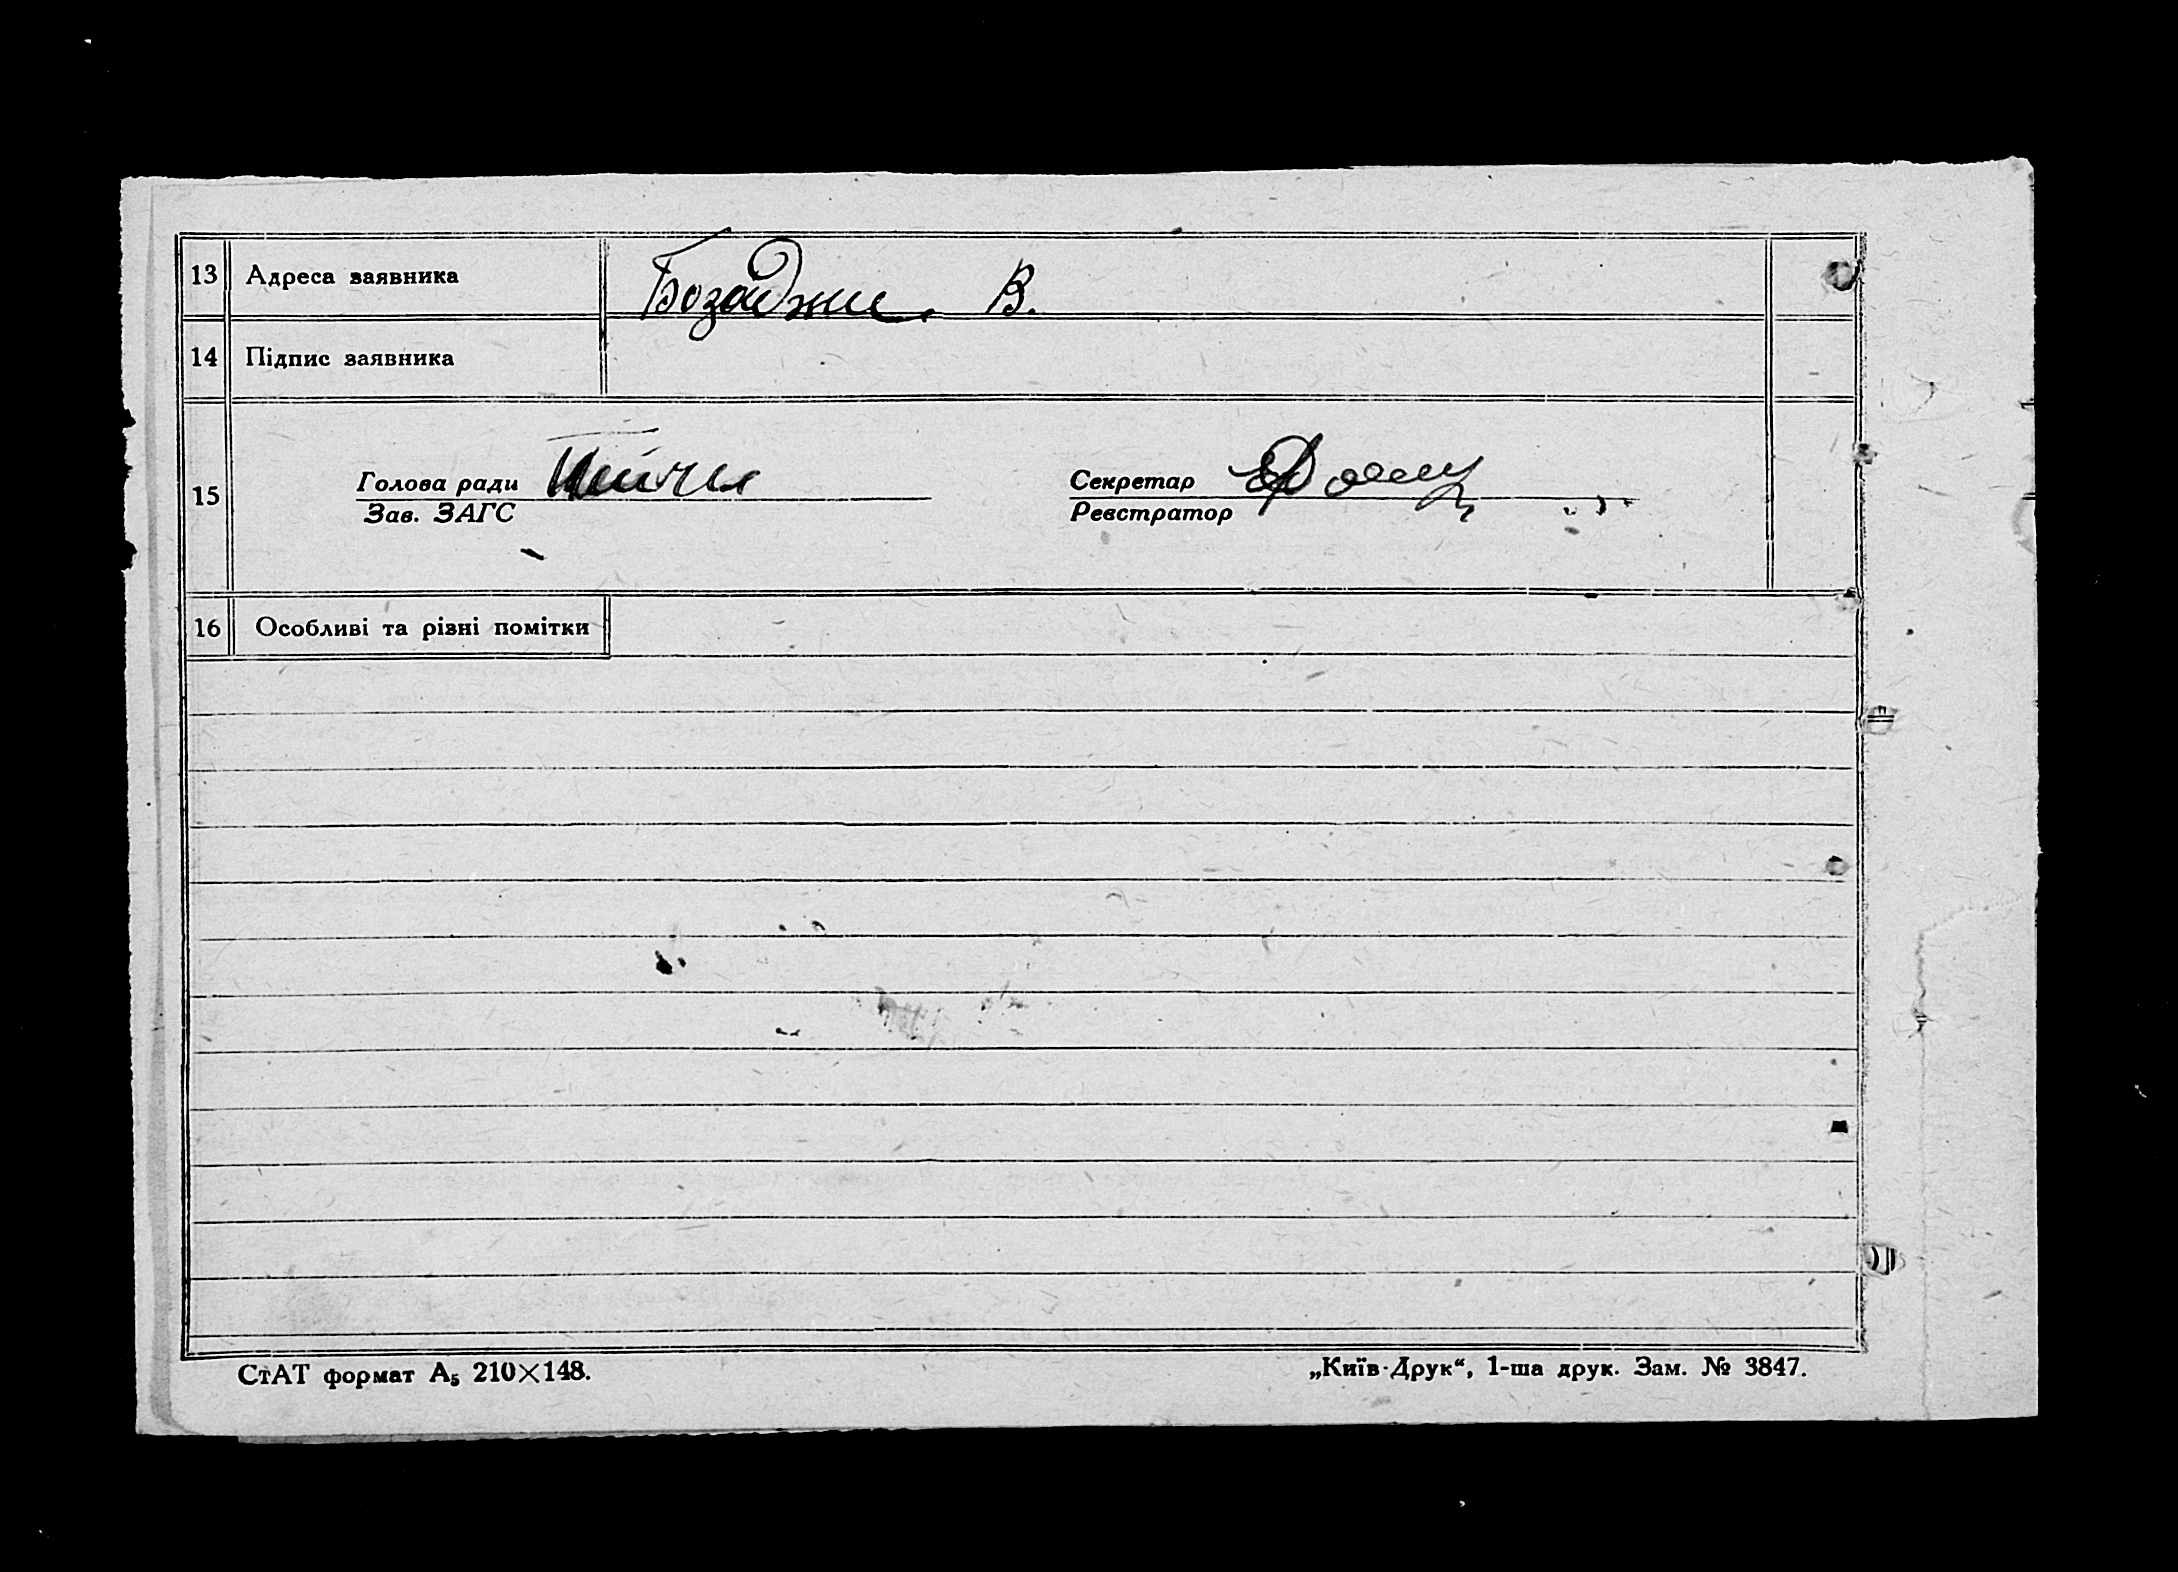 13 Адреса заявника Бозаджи В.
14 Підпис заявника
15 Голова ради Секретар
Зав. ЗАГС Реєстратор
16 Особливі та різні помітки
СтАТ формат А5 210×148. „Київ-Друк“, 1-ша друк. Зам. № 3847.